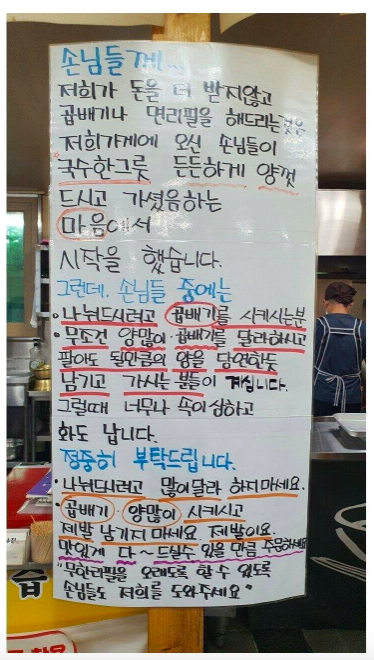 손님들께...
저희가 돈을 더 받지않고
곱배기나 면리필을 해드리는것은
저희가게에 오신 손님들이
국수한그릇 든든하게 양껏
드시고 가셨음하는
마음에서
시작을 했습니다.
그런데, 손님들 중에는
· 나눠드시려고 곱배기를 시키시는분
· 무조건 양많이·곱배기를 달라하시고
팔아도 될만큼의 양을 당연한듯
남기고 가시는 분들이 계십니다.
그럴때 너무나 속이상하고
화도 납니다.
정중히 부탁드립니다.
· 나눠드시려고 많이달라 하지마세요.
· 곱배기·양많이 시키시고
제발 남기지 마세요. 제발이요.
맛있게 다~드실수 있을 만큼 주문하세요
"무한리필을 오래도록 할 수 있도록
손님들도 저희를 도와주세요"
습